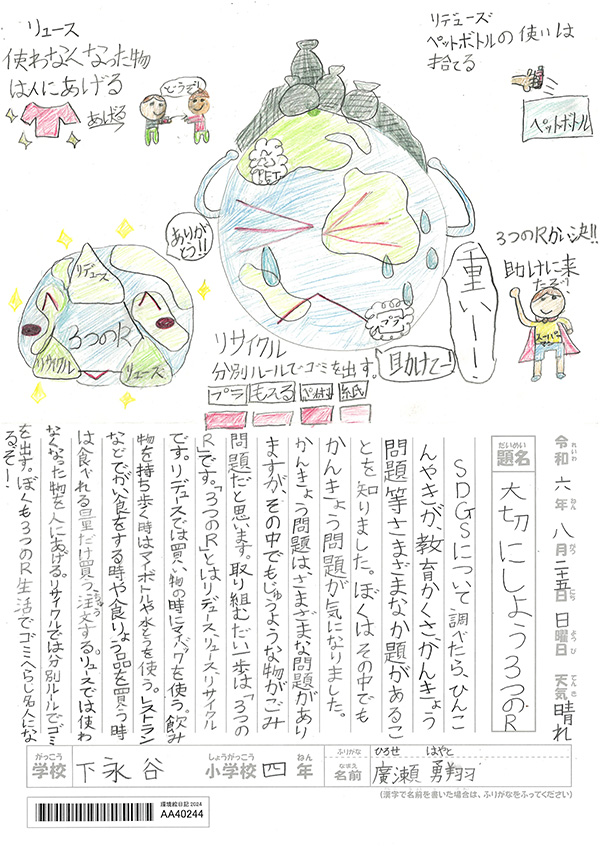 リユース
使わなくなった物
は人にあげる
あげる
どうぞ!
リデユーズ
ペットボトルの使いは
捨てる
ペットボトル
PET
ありが
とう!!
リデュース
3つのR
リサイクル
リユーズ
プラ
重いーー
助けてー
3つのRかい決!!
助けに来
たぞ!
スーパー
マン
リサイクル
分別ルールでゴミを出す。
プラ
もえる
ペットボトル
紙
令和六年八月二十五日日曜日 天気 晴れ
れいわ ねん がつ にち ようび てんき
だいめい
題名
大切にしよう3つのR
SDGSについて調べたら、ひんこ
んやきが、教育かくさ、かんきょう
問題等さまざまなか題があるこ
とを知りました。ぼくはその中でも
かんきょう問題が気になりました。
かんきょう問題は、さまざまな問題があり
ますが、その中でもじゅうような物がごみ
問題だと思います。取り組むだい一歩は「3つの
R」です。「3つのR」とはリデュース、リユース、リサイクル
です。リデュースでは買い物の時にマイバックを使う。飲み
物を持ち歩く時はマイボトルや水とうを使う。レストラン
などでがい食をする時や食りょう品を買う時
は食べれる量だけ買う、注文する。リユースでは使わ
なくなった物を人にあげる。リサイクルでは分別ルールでゴミ
を出す。ぼくも3つのR生活でゴミへらし名人にな
るぞー!
がっこう
学校
下永谷
しょうがっこう
小学校
四
ねん
年
ふりがな
ひろせ はやと
なまえ
名前
廣瀬 勇翔
(漢字で名前を書いた場合は、ふりがなをふってください)
環境絵日記2024
AA40244